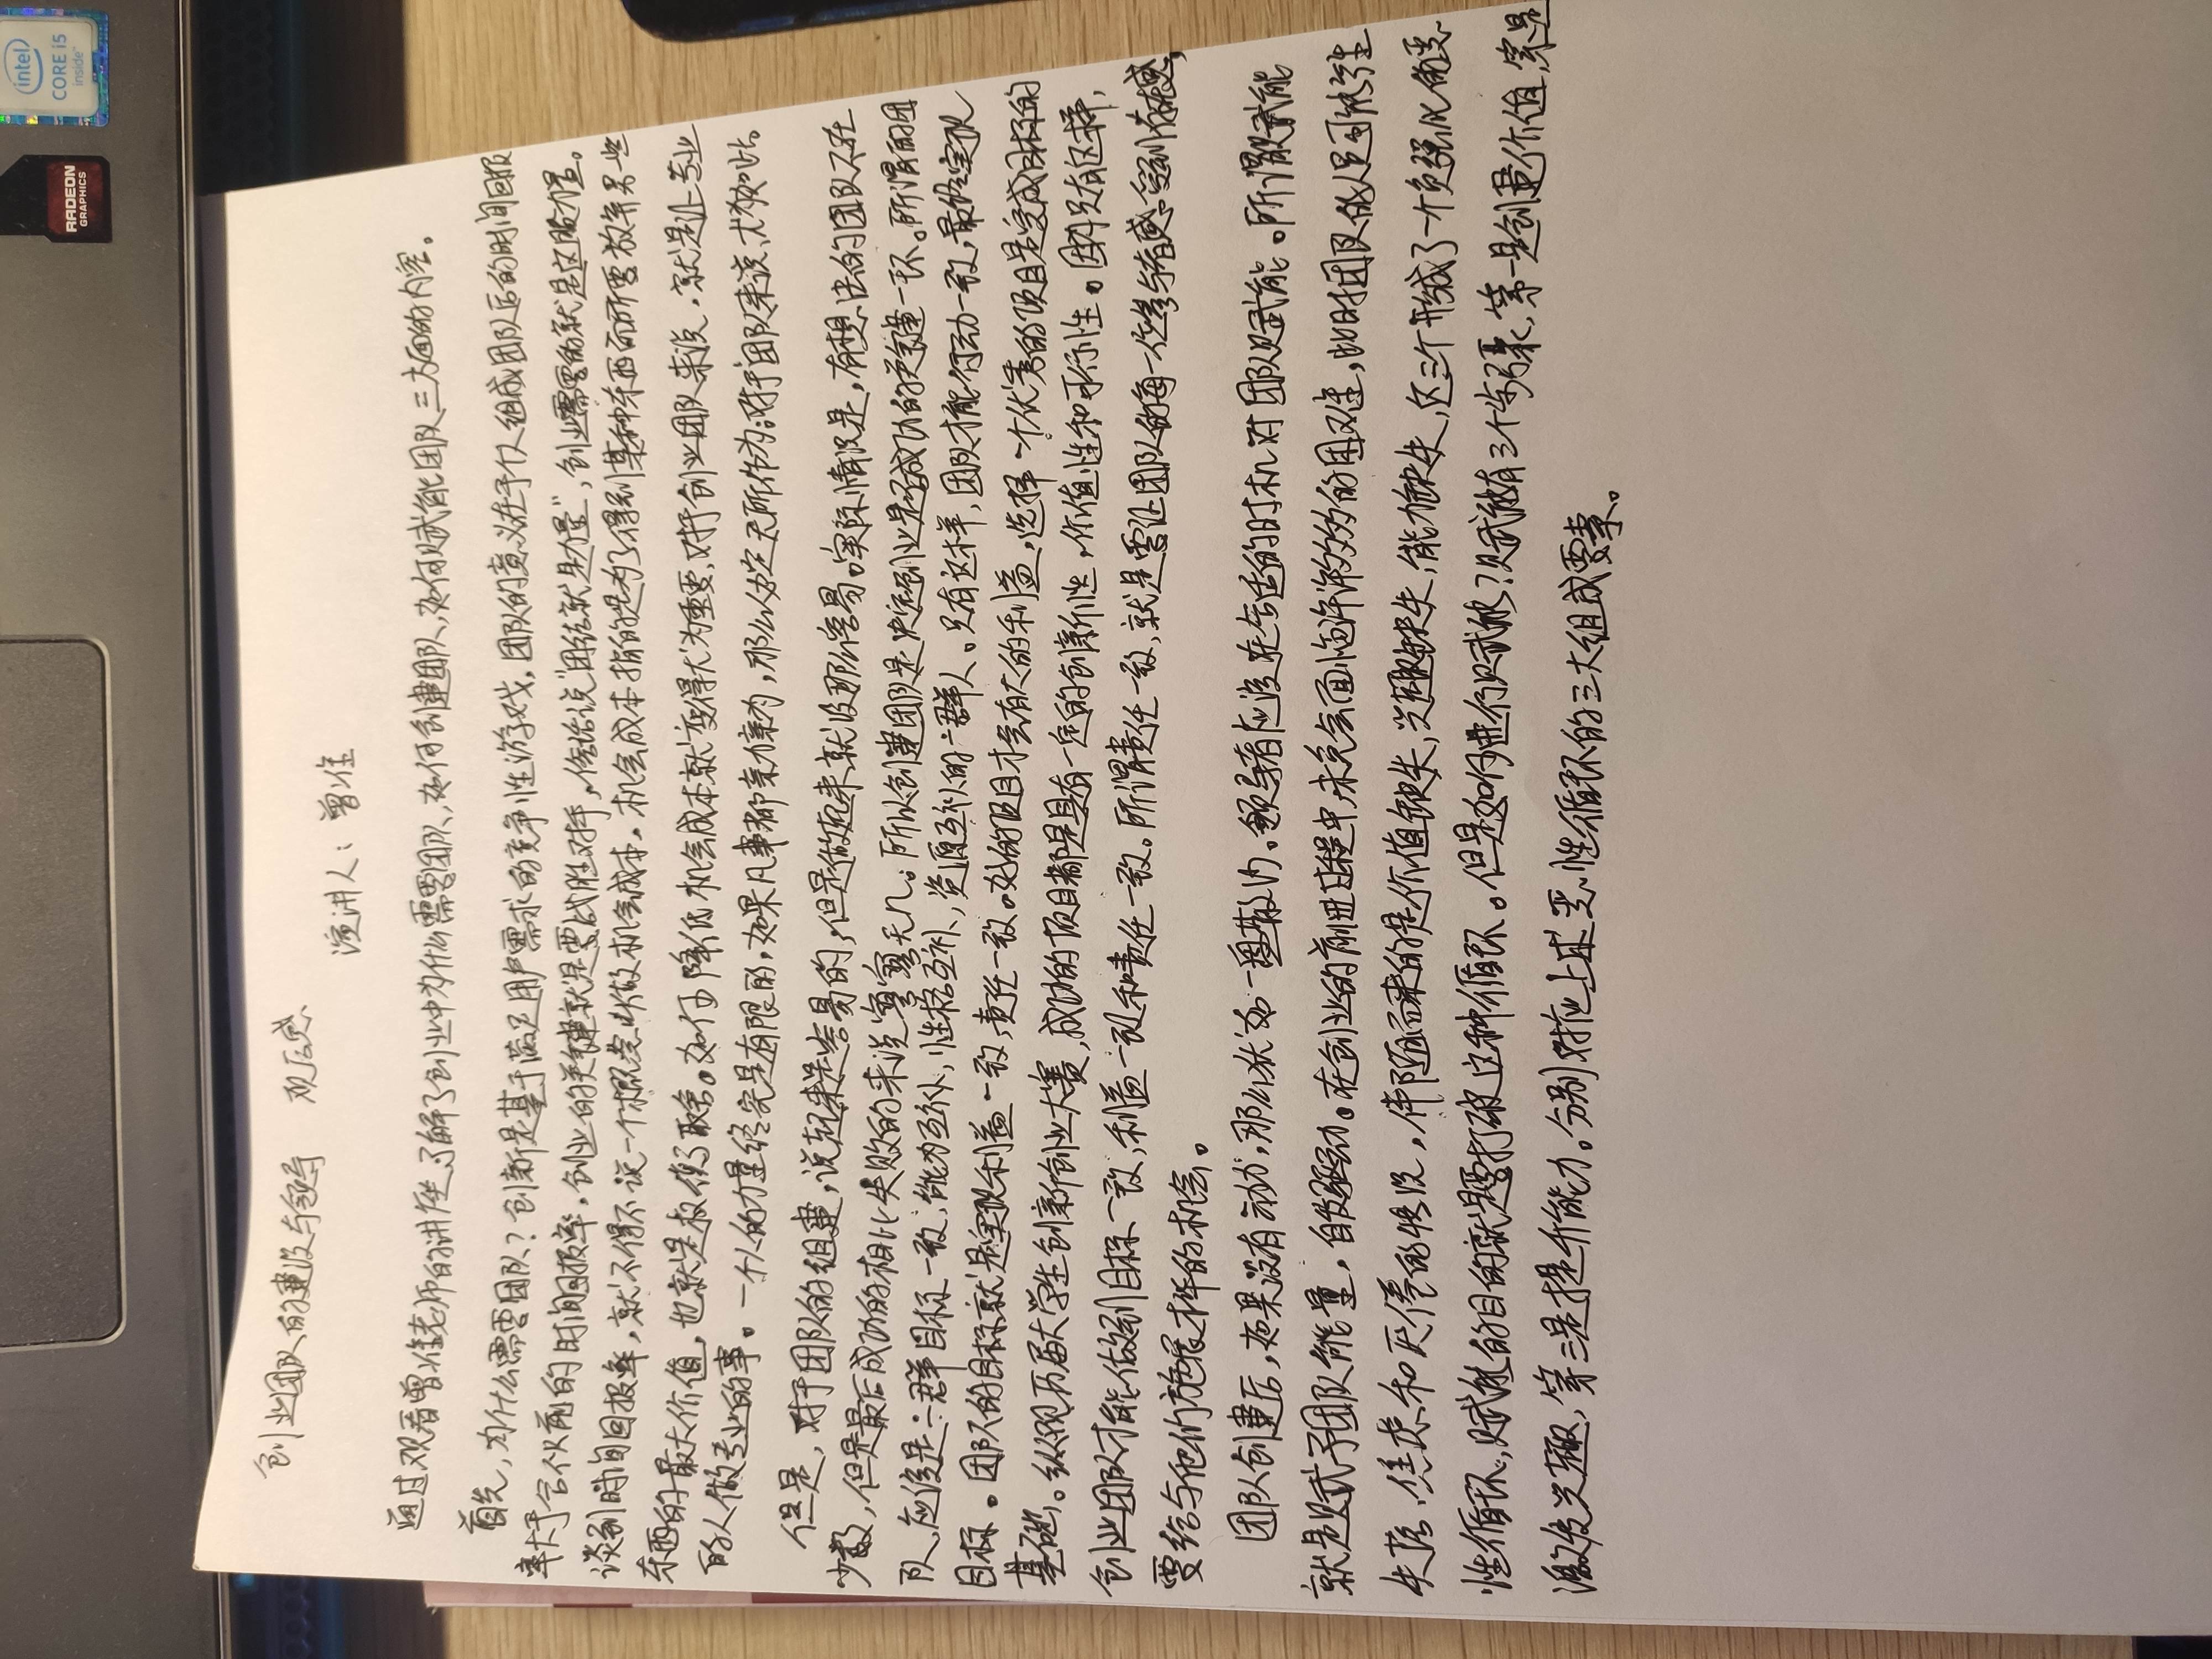 intel
CORE i5
inside™
RADEON
GRAPHICS
创业团队的建设与领导 观后感
演讲人：曾准
通过观看曾准老师的讲座,了解了创业中为什么需要团队,如何创建团队,如何赋能团队三方面的内容。
首先,为什么需要团队?创新是基于满足用户需求的竞争性游戏,团队的意义在于个人组成团队后的时间回报
率大于合伙前的时间回报率。创业的关键就是要战胜对手,俗话说"团结就是力量",创业需要的就是这股力量。
谈到时间回报率,就不得不说一个概念叫做机会成本。机会成本指的是为了得到某种东西而所要放弃另一些
东西的最大价值,也就是权衡了取舍。如何降低机会成本就变得尤为重要,对于创业团队来说,就是让专业
的人做专业的事。一个人的力量终究是有限的,如果凡事都亲力亲为,那么必定无所作为;对于团队来说、尤为如此。
但是,对于团队的组建,说起来是容易的,但是做起来就没那么容易。实际情况是,有想法的团队不在
少数,但是最后成功的相比失败的来说寥寥无几。所以创建团队是决定创业是否成功的关键一环。所谓的团
队,应该是一群目标一致,能力互补,性格互补,资源互补的一群人。只有这样,团队才能行动一致,最终实现
目标。团队的目标就是实现利益一致,责任一致。好的项目才会有大的利益,选择一个优秀的项目是完成目标的
基础。纵观历届大学生创新创业大赛,成功的项目都是具有一定的创新性,价值性和可行性。因为只有这样,
创业团队才能做到目标一致,利益一致和责任一致。所谓责任一致,就是要让团队的每一位参与者感受到存在感,
要给与他们施展才华的机会。
团队创建后,如果没有动力,那么犹如一盘散沙。领导者应该在合适的时机对团队赋能。所谓赋能
就是赋予团队能量,自发驱动。在创业的前进过程中,未免会面临许许多多的困难,此时团队的人员可能产生
失落、焦虑和厌倦的情况,伴随而来的是价值缺失,兴趣缺失,能力缺失,这三个形成了一个负强化的恶
性循环,赋能的目的就是要打破这种循环。但是如何进行赋能?赋能有三个步骤,第一是创造价值,第二是
激发兴趣,第三是提升能力。分别对应上述恶性循环的三大组成要素。